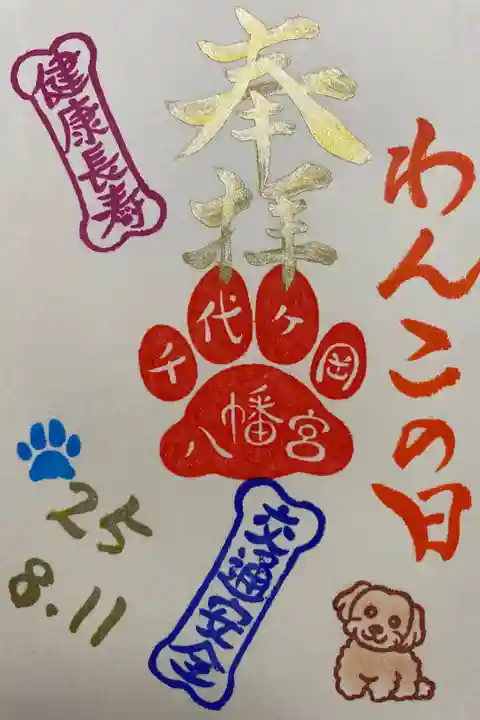 わんこの日
奉拝
千代ヶ岡
八幡宮
健康長寿
交通安全
25
8.11